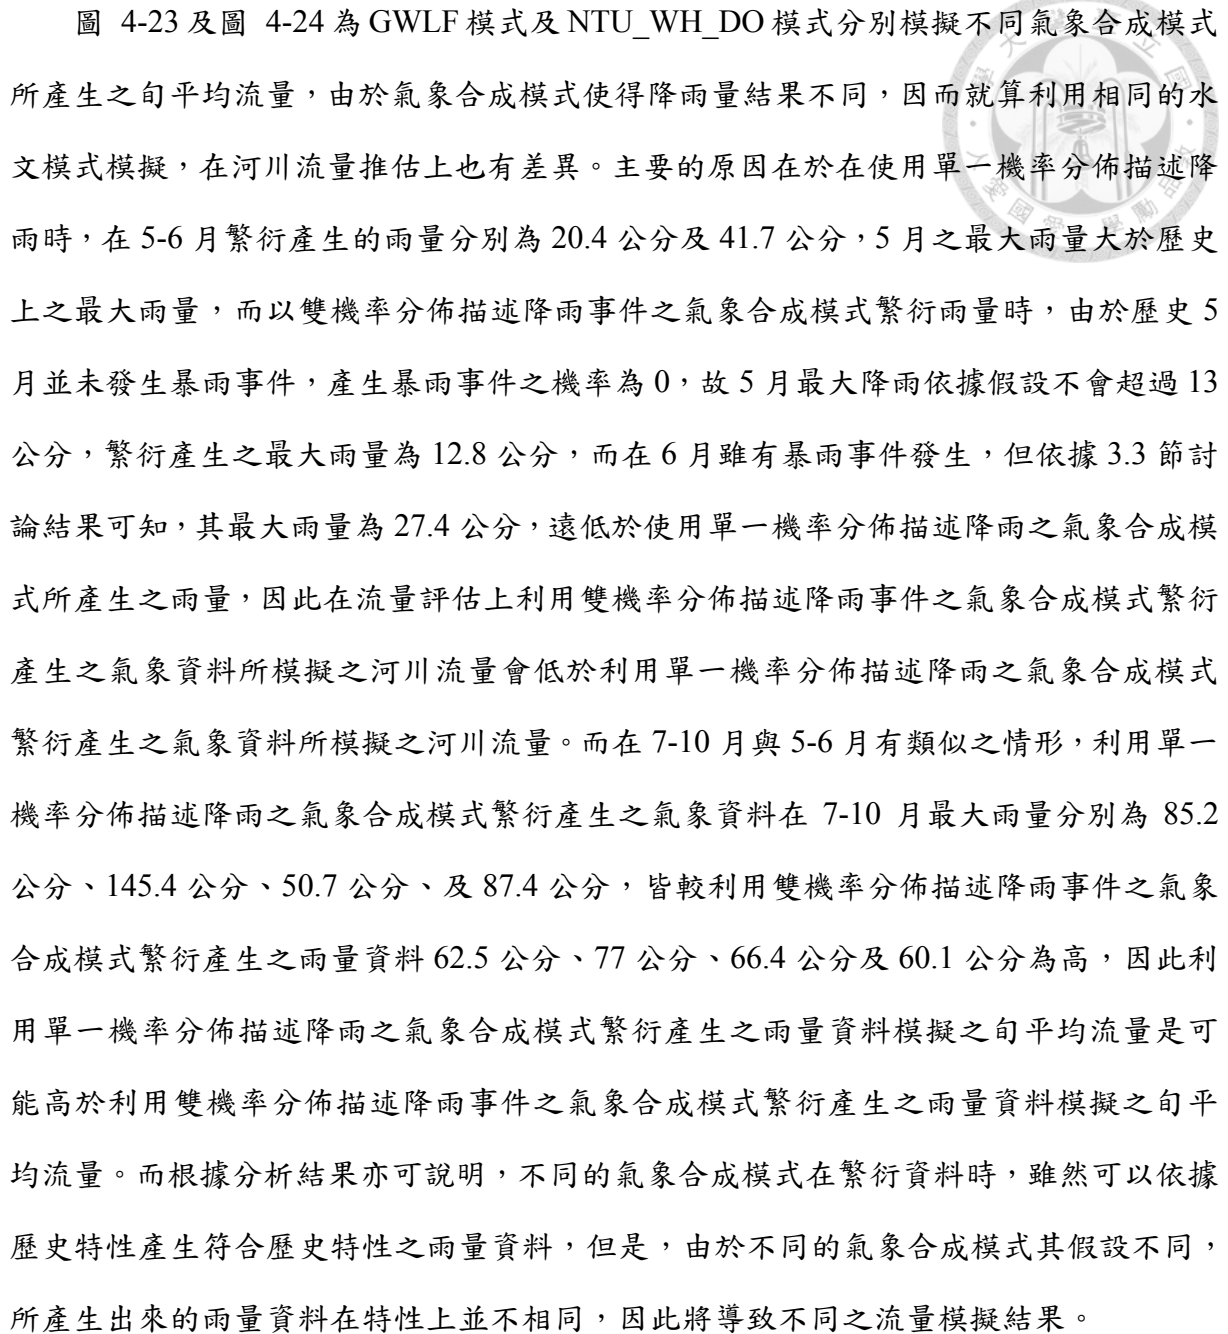 圖 4-23 及圖 4-24 為 GWLF 模式及 NTU_WH_DO 模式分別模擬不同氣象合成模式
所產生之旬平均流量，由於氣象合成模式使得降雨量結果不同，因而就算利用相同的水
文模式模擬，在河川流量推估上也有差異。主要的原因在於在使用單一機率分佈描述降
雨時，在 5-6 月繁衍產生的雨量分別為 20.4 公分及 41.7 公分，5 月之最大雨量大於歷史
上之最大雨量，而以雙機率分佈描述降雨事件之氣象合成模式繁衍雨量時，由於歷史 5
月並未發生暴雨事件，產生暴雨事件之機率為 0，故 5 月最大降雨依據假設不會超過 13
公分，繁衍產生之最大雨量為 12.8 公分，而在 6 月雖有暴雨事件發生，但依據 3.3 節討
論結果可知，其最大雨量為 27.4 公分，遠低於使用單一機率分佈描述降雨之氣象合成模
式所產生之雨量，因此在流量評估上利用雙機率分佈描述降雨事件之氣象合成模式繁衍
產生之氣象資料所模擬之河川流量會低於利用單一機率分佈描述降雨之氣象合成模式
繁衍產生之氣象資料所模擬之河川流量。而在 7-10 月與 5-6 月有類似之情形，利用單一
機率分佈描述降雨之氣象合成模式繁衍產生之氣象資料在 7-10 月最大雨量分別為 85.2
公分、145.4 公分、50.7 公分、及 87.4 公分，皆較利用雙機率分佈描述降雨事件之氣象
合成模式繁衍產生之雨量資料 62.5 公分、77 公分、66.4 公分及 60.1 公分為高，因此利
用單一機率分佈描述降雨之氣象合成模式繁衍產生之雨量資料模擬之旬平均流量是可
能高於利用雙機率分佈描述降雨事件之氣象合成模式繁衍產生之雨量資料模擬之旬平
均流量。而根據分析結果亦可說明，不同的氣象合成模式在繁衍資料時，雖然可以依據
歷史特性產生符合歷史特性之雨量資料，但是，由於不同的氣象合成模式其假設不同，
所產生出來的雨量資料在特性上並不相同，因此將導致不同之流量模擬結果。